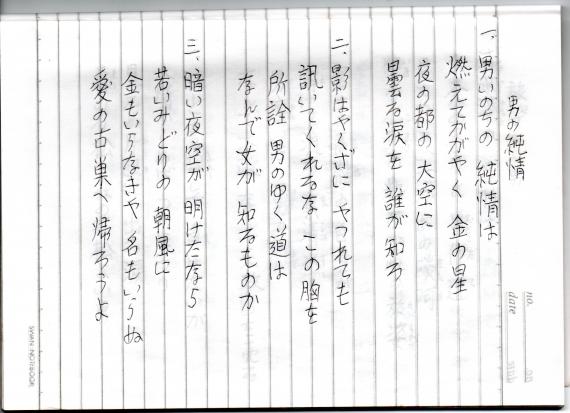 男の純情
一、男いのちの 純情は
燃えてかがやく 金の星
夜の都の 大空に
曇る涙を 誰が知ろ
二、影はやくざに やつれても
訊いてくれるな この胸を
所詮 男のゆく道は
なんで女が 知るものか
三、暗い夜空が 明けたなら
若いみどりの 朝風に
金もいらなきゃ 名もいらぬ
愛の古巣へ 帰ろうよ
no.
date